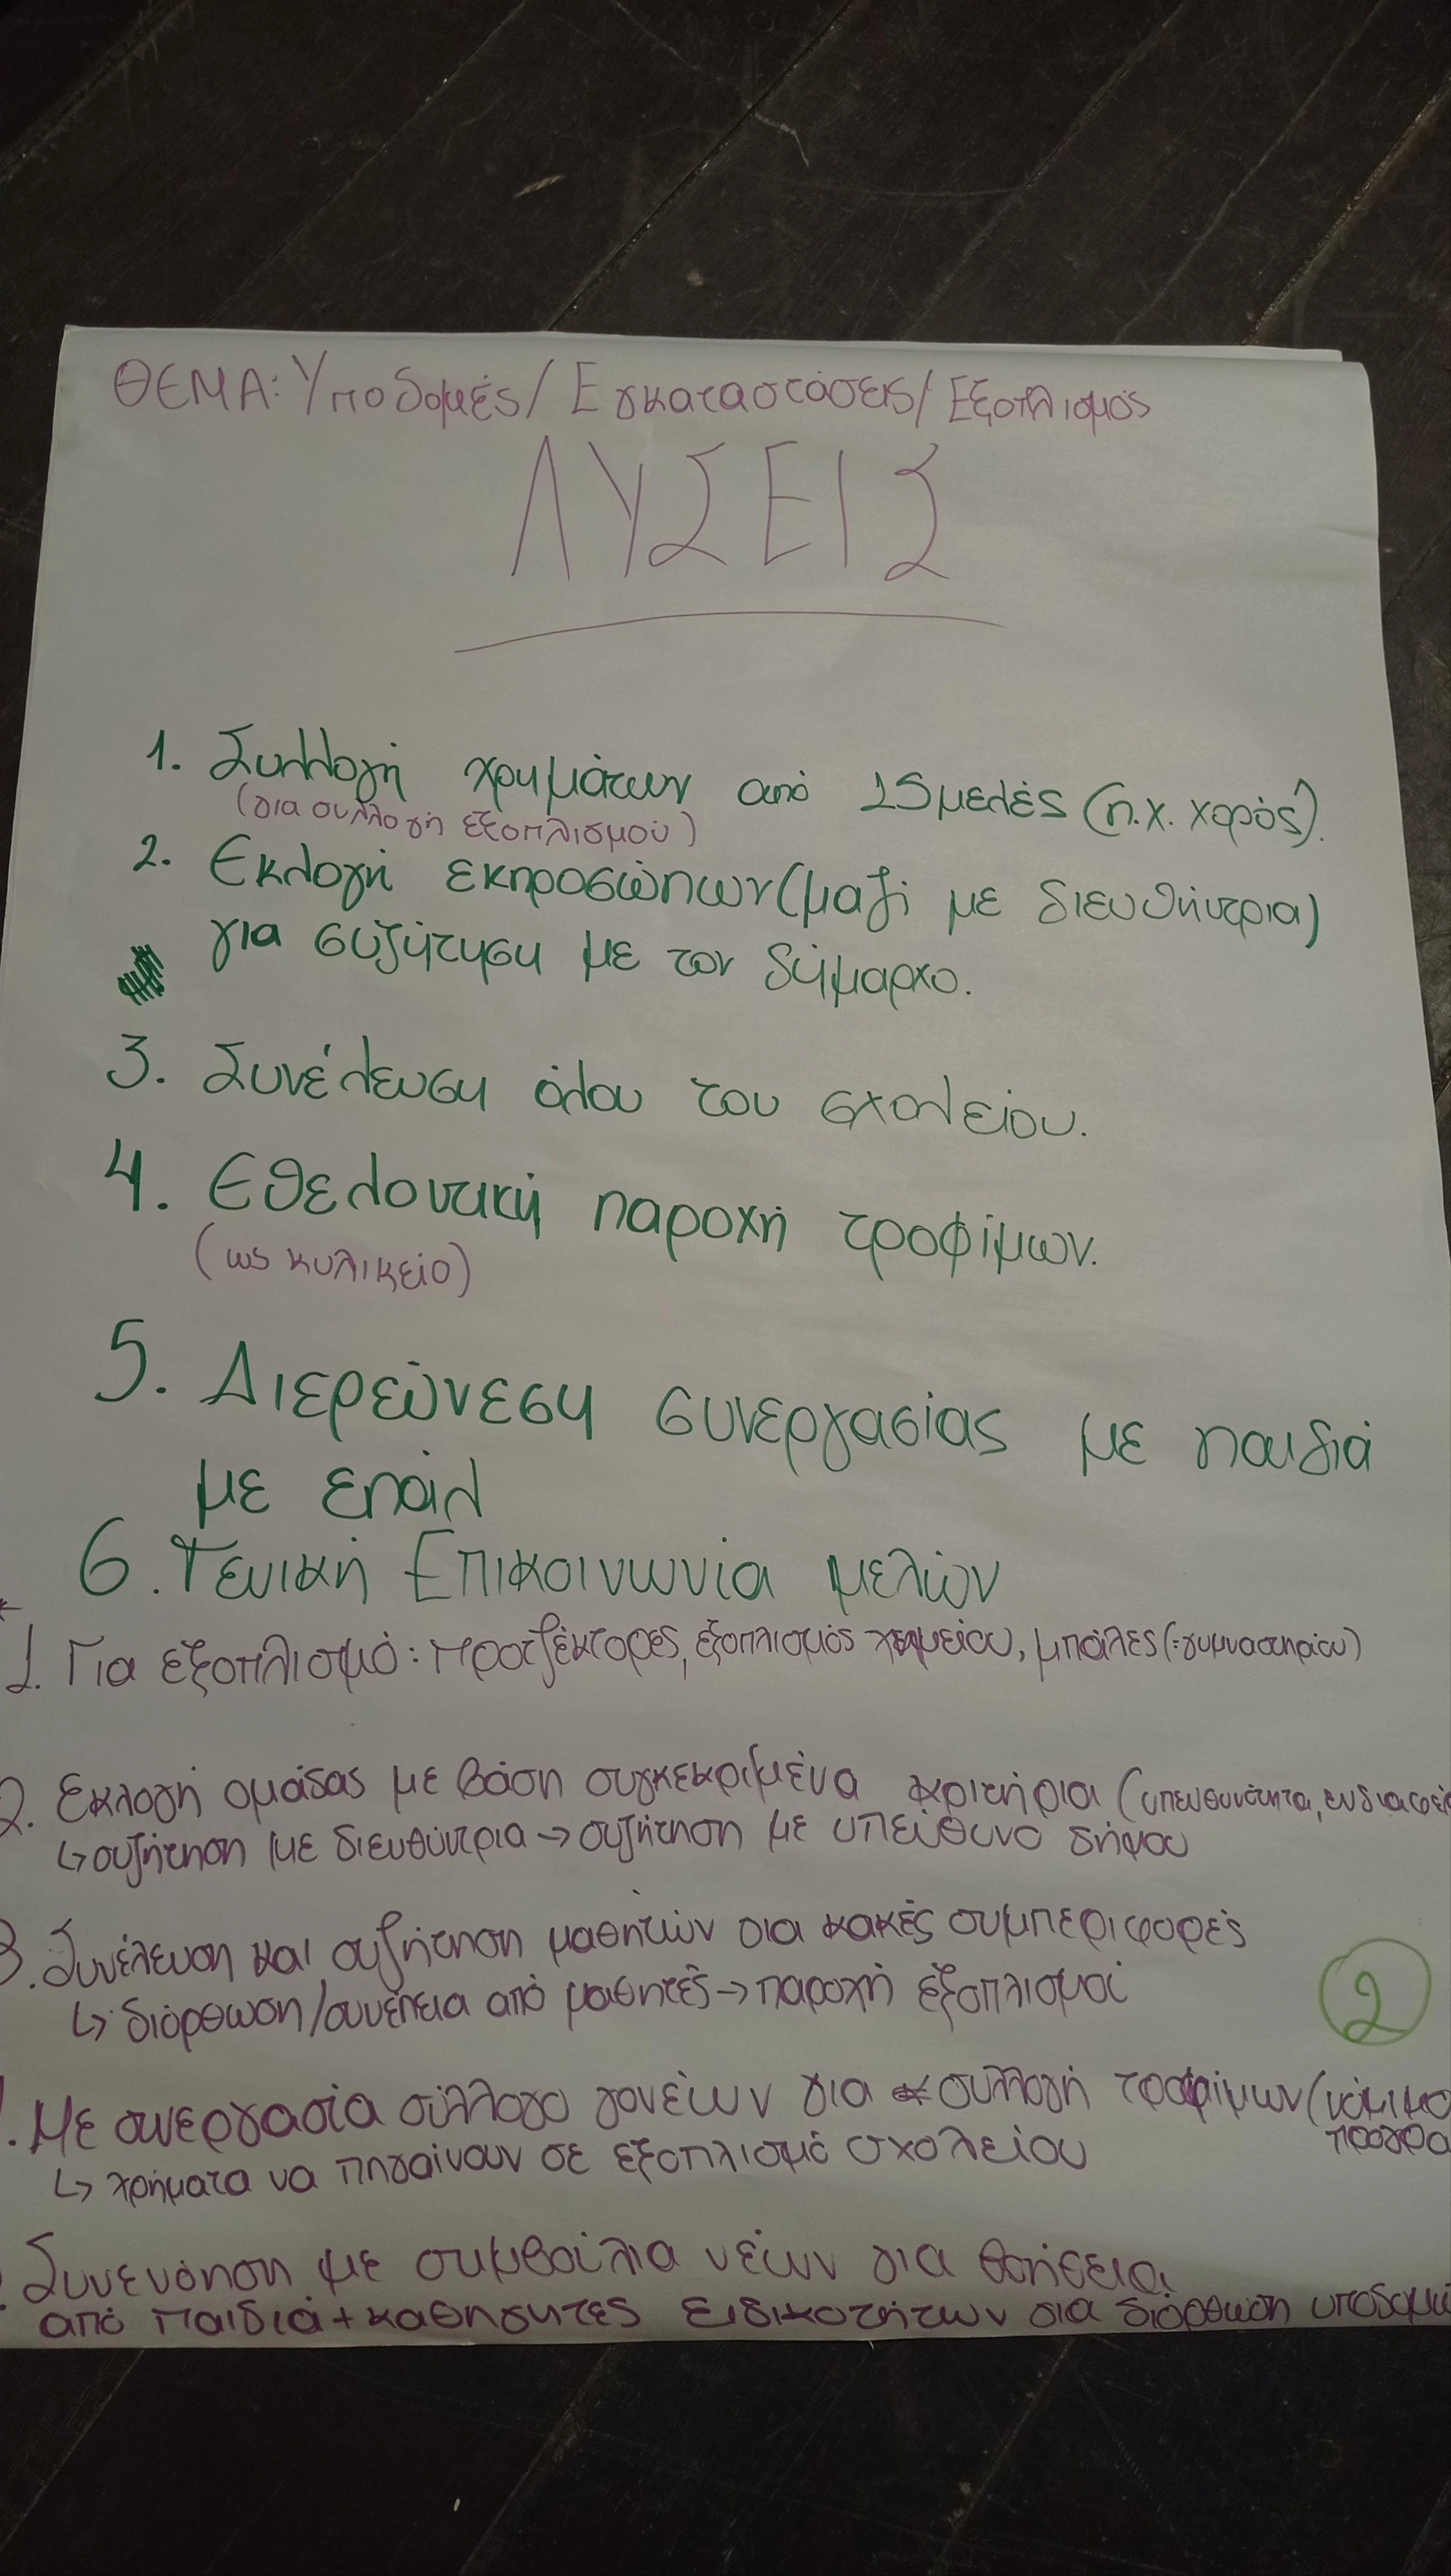 ΘΕΜΑ: Υποδομές/Εγκαταστάσεις/Εξοπλισμός
ΛΥΣΕΙΣ
1. Συλλογή χρημάτων από 15μελές (π.χ. χορός).
(για συλλογή εξοπλισμού)
2. Εκλογή εκπροσώπων (μαζί με διευθήντρια)
για συζήτηση με τον δήμαρχο.
3. Συνέλευση όλου του σχολείου.
4. Εθελοντική παροχή τροφίμων.
(ως κυλικείο)
5. Διερεύνεση συνεργασίας με παιδιά
με επάλ
6. Γενική Επικοινωνία μελών
1. Για εξοπλισμό: προτζέκτορες, εξοπλισμός χημείου, μπάλες (:γυμναστηρίου)
2. Εκλογή ομάδας με βάση συγκεκριμένα κριτήρια (υπευθυνότητα, ενδιαφέ
↳ συζήτηση με διευθύντρια → συζήτηση με υπεύθυνο δήμου
3. Συνέλευση και συζήτηση μαθητών για κακές συμπεριφορές
↳ διόρθωση/συνέπεια από μαθητές → παροχή εξοπλισμού
. Με συνεργασία σύλλογο γονέων για συλλογή τροφίμων (νόμιμο
προγρα
↳ χρήματα να πηγαίνουν σε εξοπλισμό σχολείου
2
Συνενόηση με συμβούλια νέων για
από παιδιά + καθηγητές ειδικοτήτων για διόρθωση υποδομώ